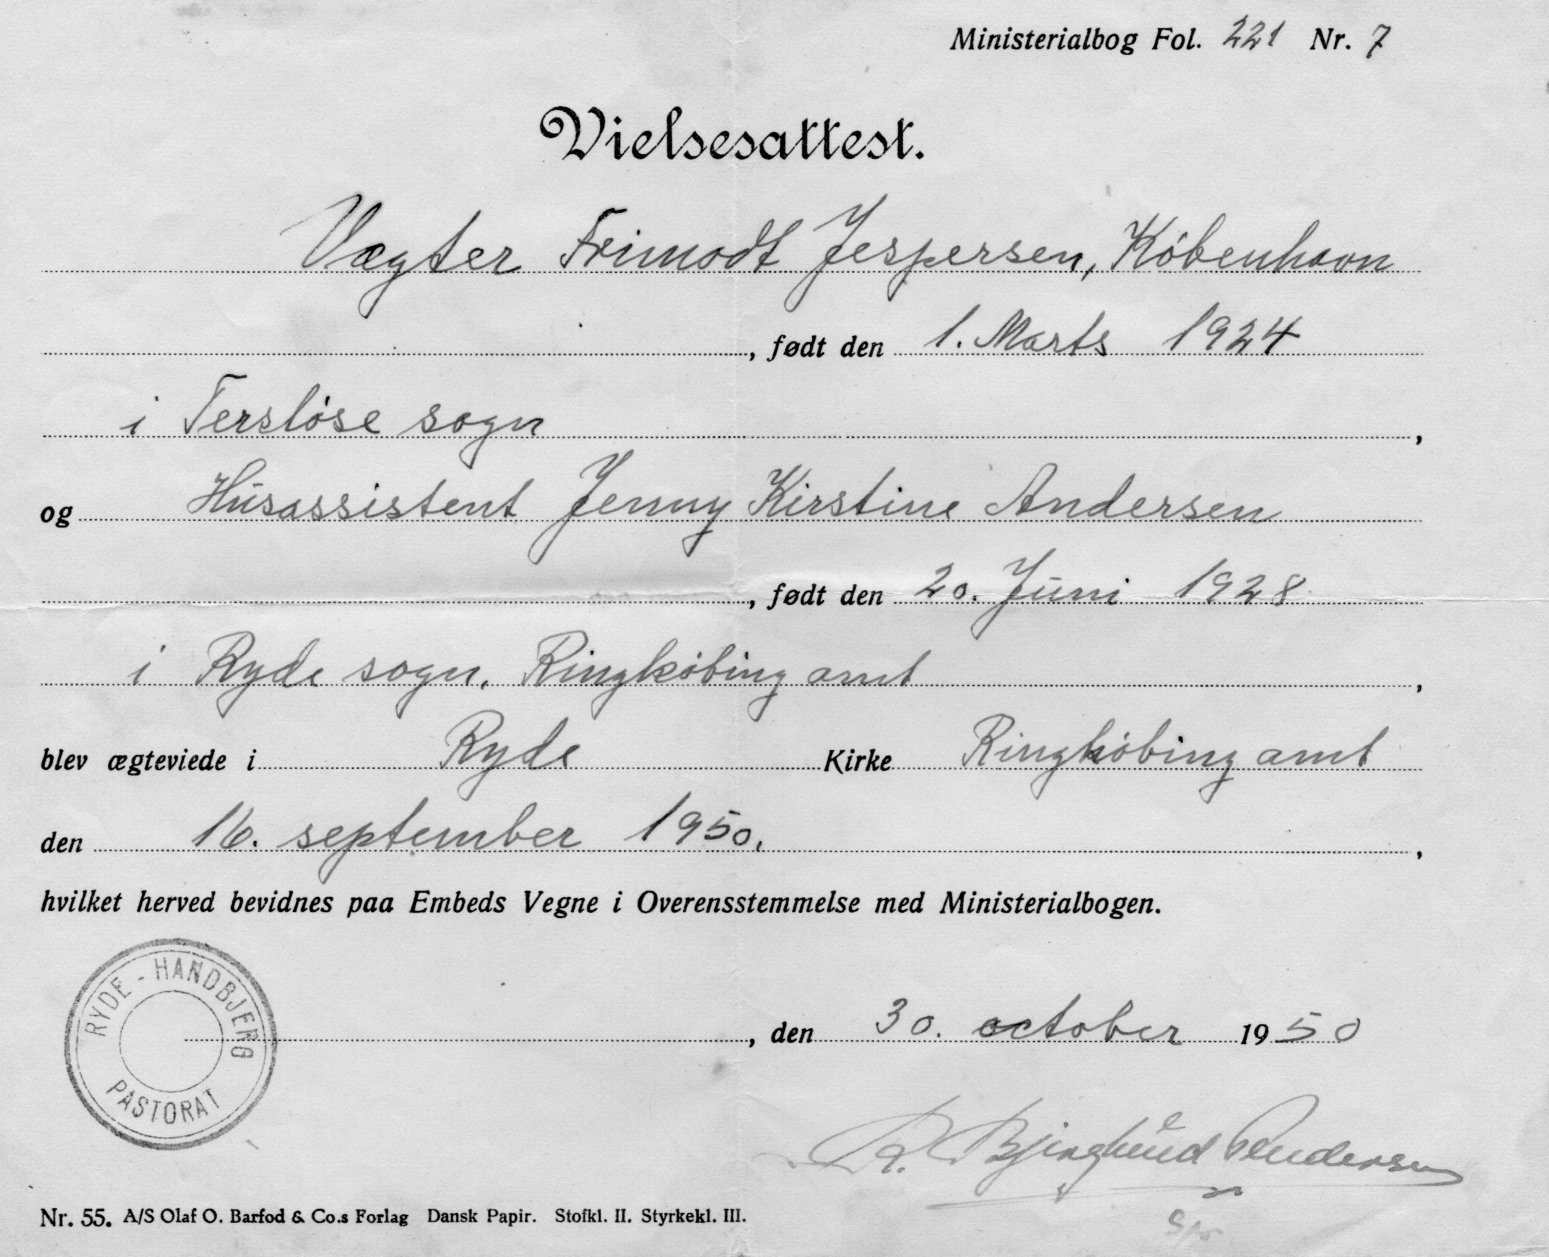 Ministerialbog Fol. 221 Nr. 7
Vielsesattest.
Vægter Frimodt Jespersen, København
, født den 1. Marts 1924
i Tersløse sogn,
og Husassistent Jenny Kirstine Andersen
, født den 20. Juni 1928
i Ryde sogn, Ringkøbing amt,
blev ægteviede i Ryde Kirke Ringkøbing amt
den 16. september 1950.,
hvilket herved bevidnes paa Embeds Vegne i Overensstemmelse med Ministerialbogen.
RYDE - HANDBJERG
PASTORAT
, den 30. october 1950
Andersen
Nr. 55. A/S Olaf O. Barfod & Co.s Forlag Dansk Papir. Stofkl. II. Styrkekl. III.